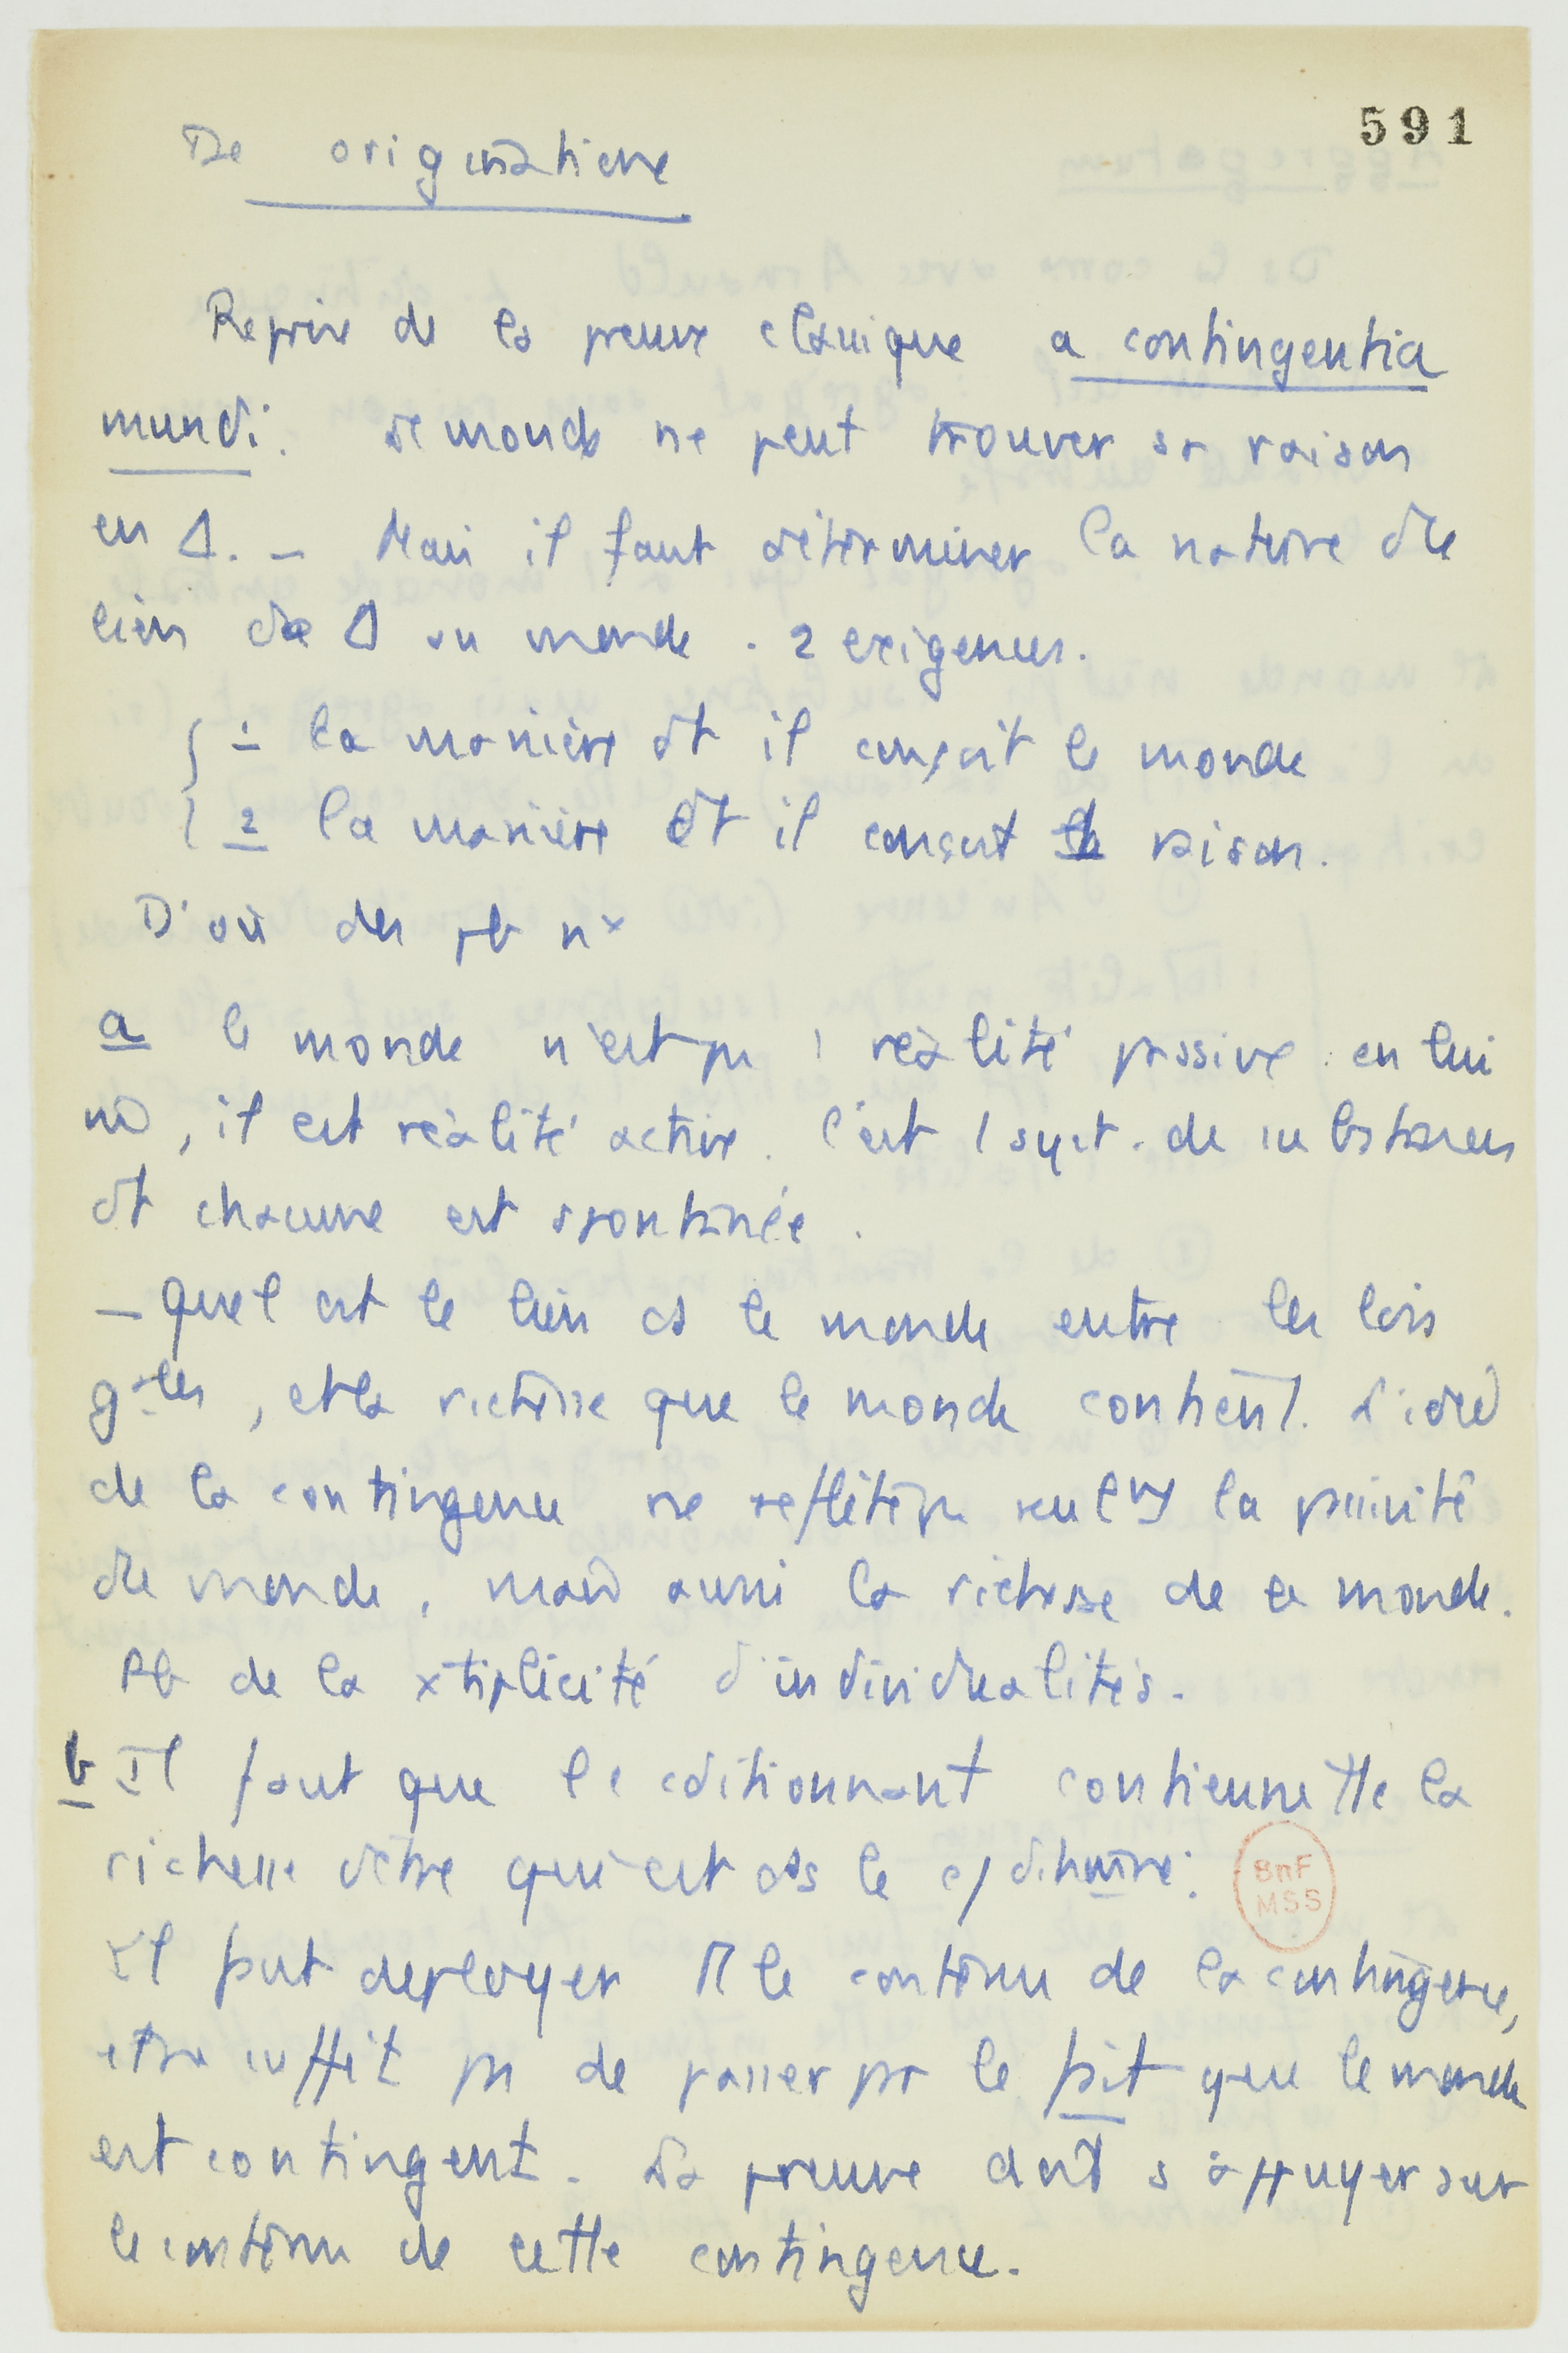 591
De originatione
Reprise de la preuve classique a contingentia
mundi. Le monde ne peut trouver sa raison
en Δ. – Mais il faut déterminer la nature du
lien de Δ au monde. 2 exigences.
1 la manière dt il conçoit le monde
2 la manière dt il conçoit la raison.
D'où des pb nx
a le monde n'est pas 1 réalité passive. en lui
mê, il est réalité active. C'est 1 syst. de substances
dt chacune est spontanée.
– Quel est le lien ds le monde entre les lois
gales, et la richesse que le monde contient. L'idée
de la contingence ne reflète pas seult la passivité
du monde, mais aussi la richesse de ce monde.
Pb de la xtiplicité d'individualités.
b Il faut que le cditionnant contienne tte la
richesse d'être qui est ds le c/ditionné:
BnF
MSS
Il faut deployer tt le contenu de la contingence,
et ne suffit pas de passer par le fait que le monde
est contingent. La preuve doit s'appuyer sur
le contenu de cette contingence.